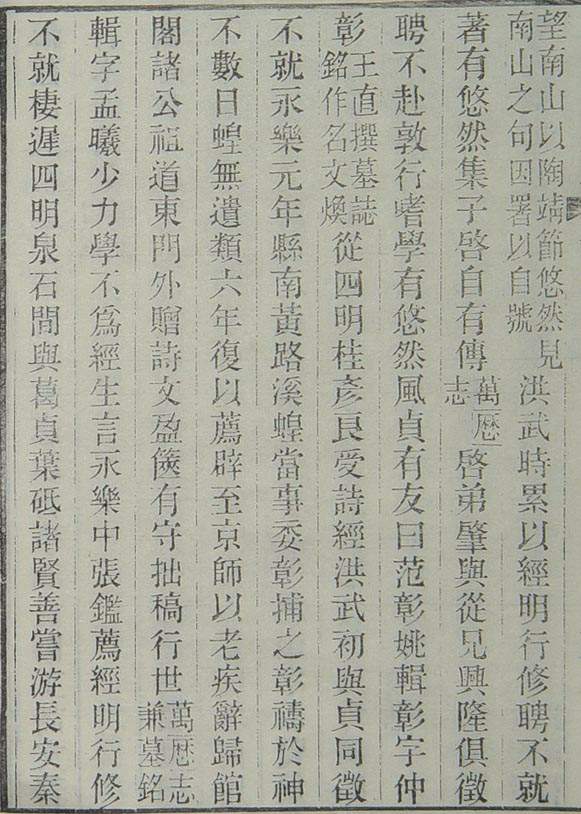 望南山以陶靖節悠然見南山之句因署以自號洪武時累以經明行修聘不就
著有悠然集子啓自有傳萬厯志啓弟肇與從兄興隆俱徵
聘不赴敦行嗜學有悠然風貞有友曰范彰姚輯彰字仲
彰王直撰墓誌銘作名文煥從四明桂彥良受詩經洪武初與貞同徵
不就永樂元年縣南黃路溪蝗當事委彰捕之彰禱於神
不數日蝗無遺類六年復以薦辟至京師以老疾辭歸館
閣諸公祖道東門外贈詩文盈篋有守拙稿行世萬厯志兼墓銘
輯字孟曦少力學不爲經生言永樂中張鑑薦經明行修
不就棲遲四明泉石間與葛貞葉砥諸賢善嘗游長安秦